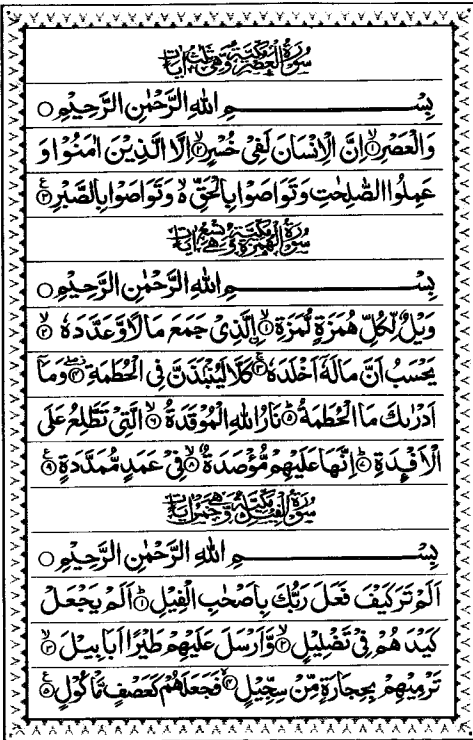 سُوْرَةُ الْعَصْرِ مَكِّيَّةٌ وَّهِيَ ثَلٰثُ اٰيَاتٍ
بِسْمِ اللهِ الرَّحْمٰنِ الرَّحِيْمِ ○
وَالْعَصْرِ ۙ﴿۱﴾ اِنَّ الْاِنْسَانَ لَفِيْ خُسْرٍ ۙ﴿۲﴾ اِلَّا الَّذِيْنَ اٰمَنُوْا وَ
عَمِلُوا الصّٰلِحٰتِ وَتَوَاصَوْا بِالْحَقِّ ۙ وَتَوَاصَوْا بِالصَّبْرِ ﴿۳﴾
سُوْرَةُ الْهُمَزَةِ مَكِّيَّةٌ وَّهِيَ تِسْعُ اٰيَاتٍ
بِسْمِ اللهِ الرَّحْمٰنِ الرَّحِيْمِ ○
وَيْلٌ لِّكُلِّ هُمَزَةٍ لُّمَزَةِ ۙ﴿۱﴾ الَّذِيْ جَمَعَ مَالًا وَّعَدَّدَهٗ ۙ﴿۲﴾
يَحْسَبُ اَنَّ مَالَهٗٓ اَخْلَدَهٗ ۚ﴿۳﴾ كَلَّا لَيُنْۢبَذَنَّ فِي الْحُطَمَةِ ﴿۴﴾ وَمَآ
اَدْرٰىكَ مَا الْحُطَمَةُ ؕ﴿۵﴾ نَارُ اللهِ الْمُوْقَدَةُ ۙ﴿۶﴾ الَّتِيْ تَطَّلِعُ عَلَى
الْاَفْـِٕدَةِ ؕ﴿۷﴾ اِنَّهَا عَلَيْهِمْ مُّؤْصَدَةٌ ۙ﴿۸﴾ فِيْ عَمَدٍ مُّمَدَّدَةٍ ﴿۹﴾
سُوْرَةُ الْفِيْلِ مَكِّيَّةٌ وَّهِيَ خَمْسُ اٰيَاتٍ
بِسْمِ اللهِ الرَّحْمٰنِ الرَّحِيْمِ ○
اَلَمْ تَرَ كَيْفَ فَعَلَ رَبُّكَ بِاَصْحٰبِ الْفِيْلِ ؕ﴿۱﴾ اَلَمْ يَجْعَلْ
كَيْدَهُمْ فِيْ تَضْلِيْلٍ ۙ﴿۲﴾ وَّاَرْسَلَ عَلَيْهِمْ طَيْرًا اَبَابِيْلَ ۙ﴿۳﴾
تَرْمِيْهِمْ بِحِجَارَةٍ مِّنْ سِجِّيْلٍ ۙ﴿۴﴾ فَجَعَلَهُمْ كَعَصْفٍ مَّاْكُوْلٍ ﴿۵﴾